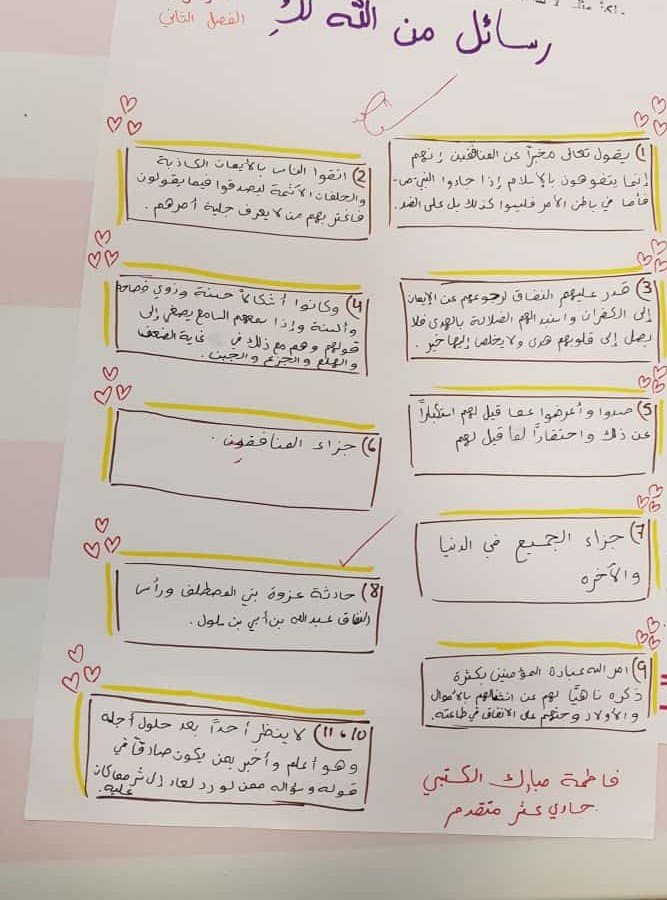 الفصل الثاني
رسائل من الله لكِ
1) يقول تعالى مخبراً عن المنافقين إنهم
إنما يتفوهون بالإسلام إذا جاءوا النبي -ص-
فأما في باطن الأمر فليسوا كذلك بل على الضد.
2) اتقوا الناس بالأيمان الكاذبة
والحلفات الآثمة ليصدقوا فيما يقولون
فاغتر بهم من لا يعرف جلية أمرهم.
3) قدر عليهم النفاق لرجوعهم عن الإيمان
إلى الكفران واستبدالهم الضلالة بالهدى فلا
يصل إلى قلوبهم هدى ولا يخلص إليها خير.
4) وكانوا أشكالاً حسنة وذوي فصاحة
وألسنة وإذا سمعهم السامع يصغي إلى
قولهم وهم مع ذلك في غاية الضعف
والهلع والجزع والجبن.
5) صدوا وأعرضوا عما قيل لهم استكباراً
عن ذلك واحتقاراً لما قيل لهم
6) جزاء المنافقين.
7) جزاء الجميع في الدنيا
والآخره
8) حادثة غزوة بني المصطلق ورأس
النفاق عبدالله بن أبي بن سلول.
9) امر الله عباده المؤمنين بكثرة
ذكره ناهيًا لهم عن انشغالهم بالأموال
والأولاد وحثهم على الانفاق في طاعته.
10، 11) لا ينظر أحداً بعد حلول أجله
وهو أعلم وأخبر بمن يكون صادقاً في
قوله وسؤاله ممن لو رد لعاد إلى شر مما كان
عليه.
فاطمة مبارك الكتبي
حادي عشر متقدم